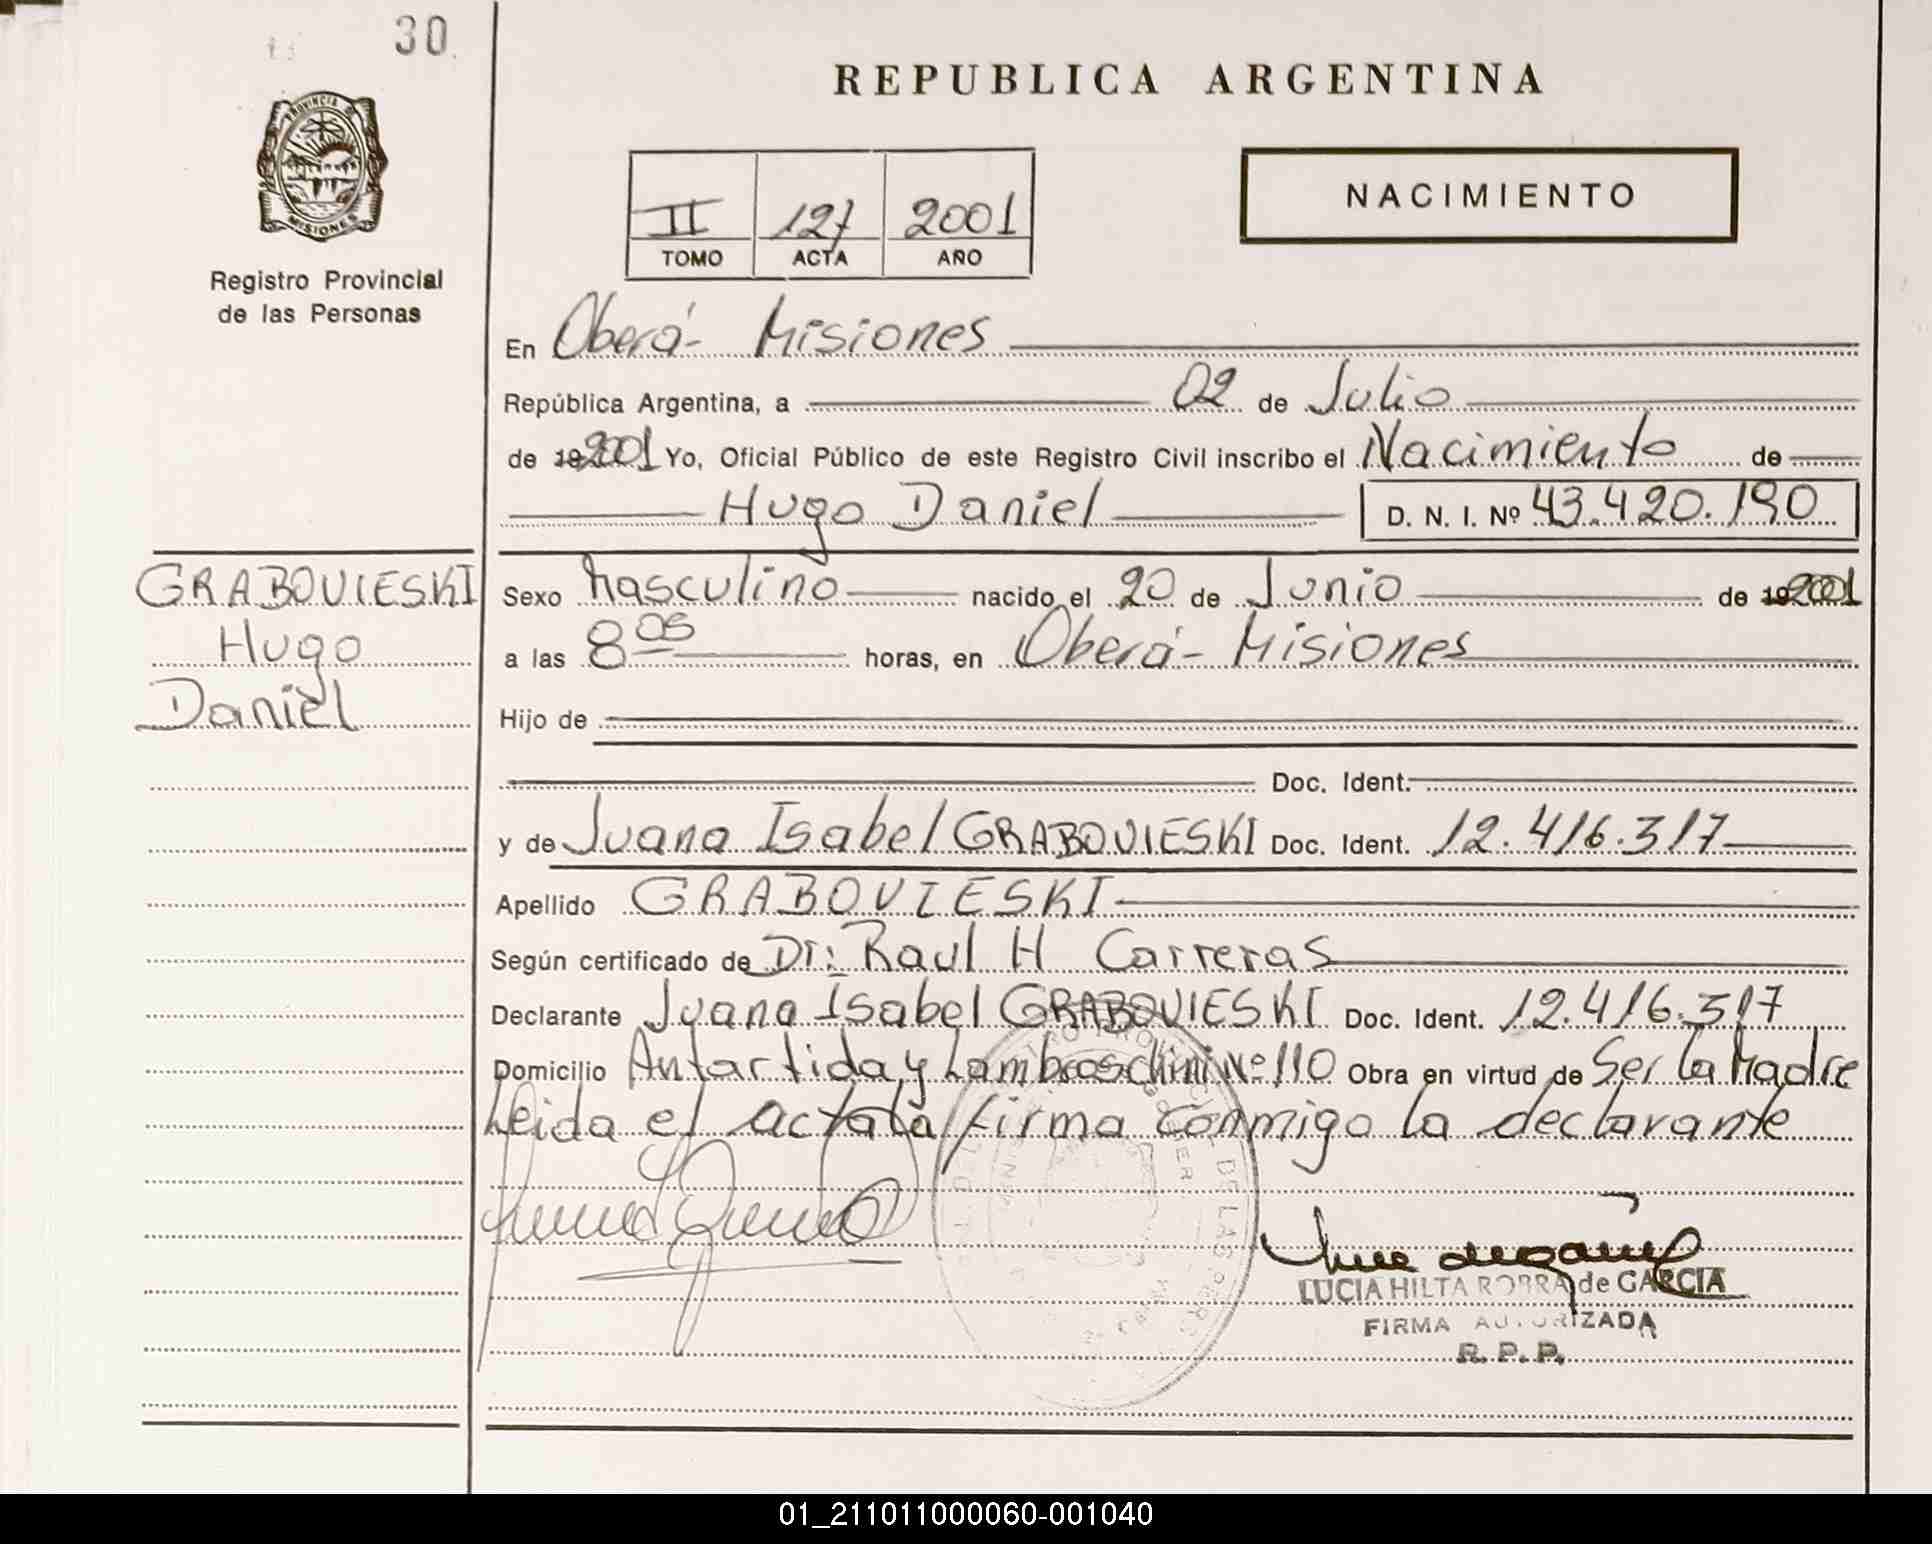 30
REPUBLICA ARGENTINA
PROVINCIA DE
MISIONES
Registro Provincial
de las Personas
II 127 2001
TOMO ACTA AÑO
NACIMIENTO
En Oberá- Misiones
República Argentina, a 02 de Julio
de 192001 Yo, Oficial Público de este Registro Civil inscribo el Nacimiento de
Hugo Daniel D. N. I. Nº 43.420.190
GRABOVIESKI
Hugo
Daniel
Sexo Masculino nacido el 20 de Junio de 192001
a las 8 05 horas, en Oberá- Misiones
Hijo de
Doc. Ident.
y de Juana Isabel GRABOVIESKI Doc. Ident. 12.416.317
Apellido GRABOVIESKI
Según certificado de Dr: Raul H Carreras
Declarante Juana Isabel GRABOVIESKI Doc. Ident. 12.416.317
Domicilio Antartida y Lambroschini Nº 110 Obra en virtud de Ser la Madre
Leida el acta la firma conmigo la declarante
LUCIA HILTA ROBRA de GARCIA
FIRMA AUTORIZADA
R. P. P.
01_211011000060-001040